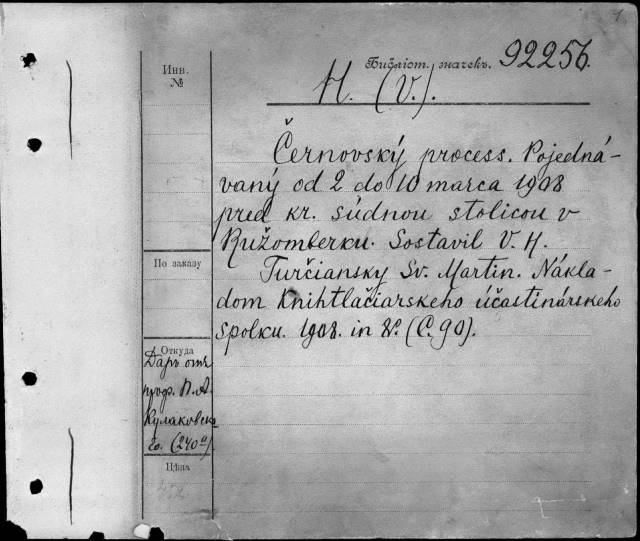 1
Инв.
№
Библіот. значекъ. 92256.
H. (V.).
Černovský process. Pojedná-
vaný od 2 do 10 marca 1908
pred kr. súdnou stolicou v
Ružomberku. Sostavil V. H.
Turčiansky Sv. Martin. Nákla-
dom knihtlačiarskeho účastinárskeho
spolku. 1908. in 8°. (C. 90).
По заказу
Откуда
Даръ отъ
проф. П. А.
Кулаковска-
го. (240а)
Цѣна